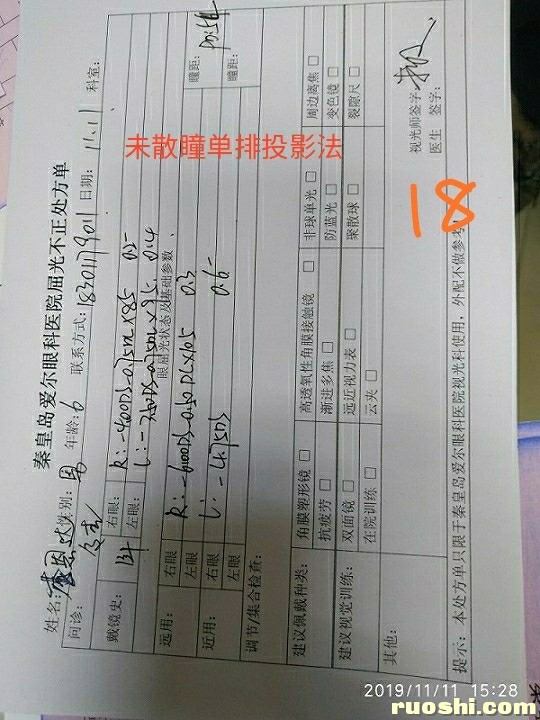 秦皇岛爱尔眼科医院屈光不正处方单
姓名: 性别: 男 年龄: 6 联系方式: 18301179011 日期: 11.11 科室:
问诊: 复查
戴镜史: 1年 右眼: R: -4.00DS-0.75DC×85 0.2-
左眼: L: 0.4
眼屈光状态及基础参数
远用: 右眼 R: -6.00DS-0.50DC×105 0.3 瞳距: PD:54
左眼 L: -4.75DS 0.6-
近用: 右眼 瞳距:
左眼
调节/集合检查:
建议佩戴种类: 角膜塑形镜 □ 高透氧性角膜接触镜 □ 非球单光 □ 周边离焦 □
抗疲劳 □ 渐进多焦 □ 防蓝光 □ 变色镜 □
建议视觉训练: 双面镜 □ 远近视力表 □ 聚散球 □ 裂隙尺 □
在院训练 □ 云夹 □
其他:
视光师签字:
医生 签字:
提示: 本处方单只限于秦皇岛爱尔眼科医院视光科使用, 外配不做参考.
未散瞳单排投影法
18
2019/11/11 15:28
ruoshi.com